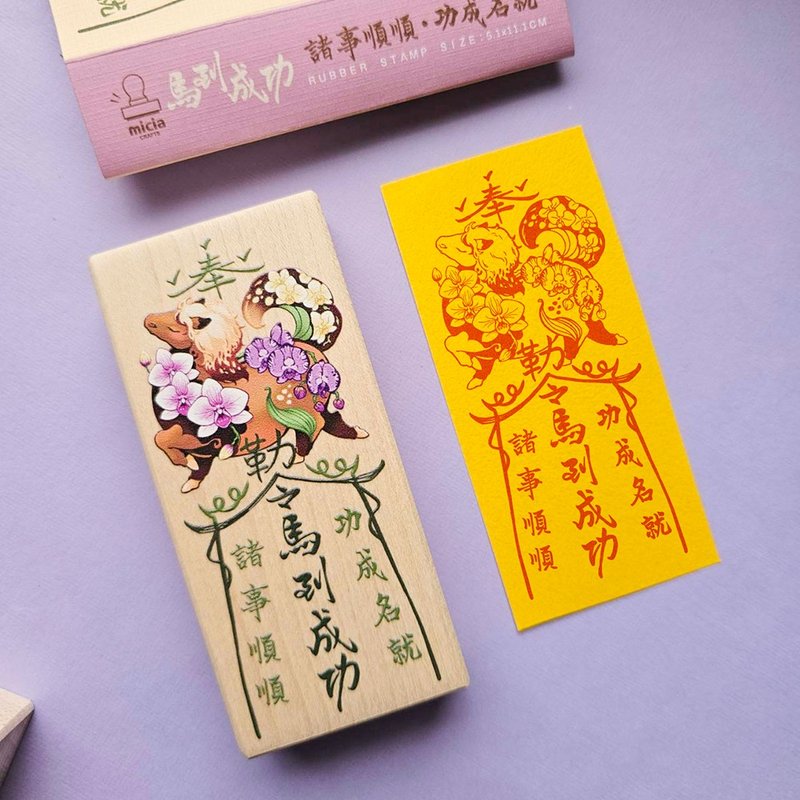 馬到成功 諸事順順·功成名就
RUBBER STAMP SIZE:5.1x11.1CM
micia
CRAFTS
奉
勒令馬到成功
功成名就
諸事順順
奉
勒令馬到成功
功成名就
諸事順順